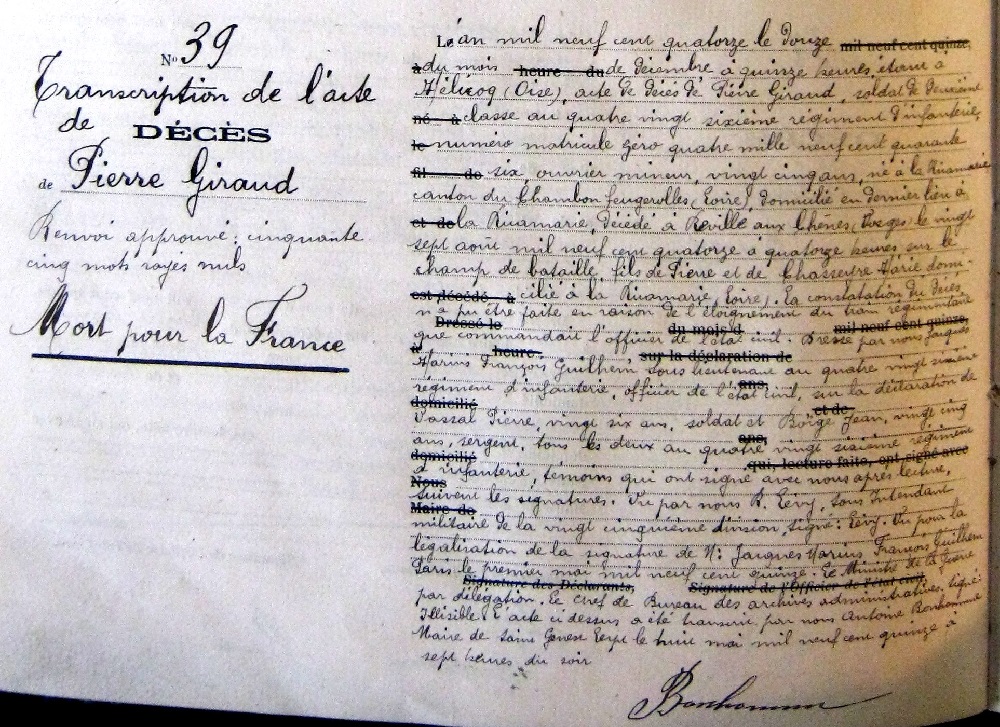 N° 39
Transcription de l'acte
de DÉCÈS
de Pierre Giraud
Renvoi approuvé : cinquante
cinq mots rayés nuls
Mort pour la France
L'an mil neuf cent quatorze le douze mil neuf cent quinze,
à du mois heure du de décembre à quinze heures, étant à
Hélicoq (Oise), acte de décès de Pierre Giraud, soldat de deuxième
né à classe au quatre vingt sixième régiment d'infanterie,
le numéro matricule zéro quatre mille neuf cent quarante
fil de six, ouvrier mineur, vingt cinq ans, né à la Ricamarie
canton du Chambon feugerolles (Loire), domicilié en dernier lieu à
et de la Ricamarie, décédé à Reville aux Chênes, Vosges le vingt
sept aout mil neuf cent quatorze à quatorze heures sur le
champ de bataille, fils de Pierre et de Chasseutre Marie domi-
est décédé à cilié à la Ricamarie, (Loire). La constatation du décès
n'a pu être faite en raison de l'éloignement du train régimentaire
Dressé le du mois d mil neuf cent quinze,
que commandait l'officier de l'état civil. Dressé par nous Jacques
à heure sur la déclaration de
Marius François Guilhem sous lieutenant au quatre vingt sixième
régiment d'infanterie, officier de l'état civil, sur la déclaration de
ans,
domicilié et de
Vassal Pierre, vingt six ans, soldat et Borge Jean, vingt cinq
ans,
ans, sergent, tous les deux au quatre vingt sixième régiment
domicilié qui, lecture faite, ont signé avec
d'infanterie, témoins qui ont signé avec nous après lecture,
Nous
suivent les signatures. Vu par nous B. Lévy, sous Intendant
Maire de
militaire de la vingt cinquième division, signé : Lévy. Vu pour la
légalisation de la signature de M. Jacques Marius François Guilhem
Paris le premier mai mil neuf cent quinze. Le Ministre de la Guerre
Signature des Déclarants, Signature de l'Officier de l'état civil,
par délégation. Le chef de Bureau des archives administratives. Signé
Illisible. L'acte ci dessus a été transcrit par nous Antoine Bonhomme
Maire de Saint Genest Lerpt le huit mai mil neuf cent quinze à
sept heures du soir
Bonhomme